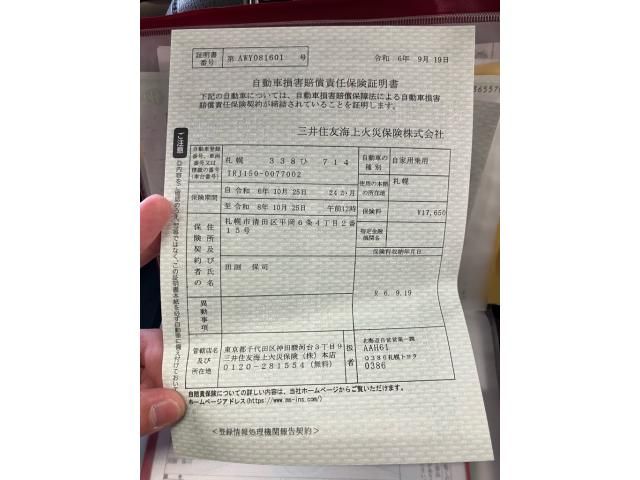 証明書番号 第 AWY081601 号
令和 6年 9月 19日
自動車損害賠償責任保険証明書
下記の自動車については、自動車損害賠償保障法による自動車損害
賠償責任保険契約が締結されていることを証明します。
三井住友海上火災保険株式会社
自動車登録番号、車両番号又は標識の番号(車台番号)
札幌 338ひ 714
TRJ150-0077002
自動車の種別 自家用乗用
使用の本拠の所在地 札幌
保険期間
自 令和 6年 10月 25日 24か月
至 令和 8年 10月 25日 午前12時
保険料 ¥17,650
指定金融機関名
保険料収納年月日
R 6. 9.19
保険契約者の住所及び氏名
札幌市清田区平岡6条4丁目2番
15号
田渕 保司
異動事項
管轄店名及び所在地
東京都千代田区神田駿河台3丁目9
三井住友海上火災保険(株)本店
0120-281554(無料)
扱者
北海道自営営業一課
AAH61
0386札幌トヨタ
0386
自賠責保険についての詳しい内容は、当社ホームページからご覧いただけます。
ホームページアドレス(https://www.ms-ins.com/)
<登録情報処理機関報告契約>
ご注意